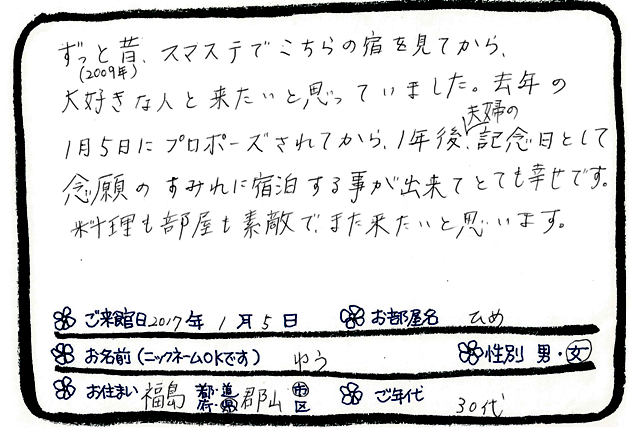 ずっと昔、スマステでこちらの宿を見てから、
(2009年)
大好きな人と来たいと思っていました。去年の
1月5日にプロポーズされてから、1年後、夫婦の記念日として
念願のすみれに宿泊する事が出来てとても幸せです。
料理も部屋も素敵で、また来たいと思います。
ご来館日 2017年 1月 5日 お部屋名 ひめ
お名前(ニックネームOKです) ゆう 性別 男・女
お住まい 福島 都・道・府・県 郡山 市・区 ご年代 30代